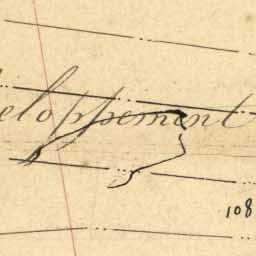 eloppement
108